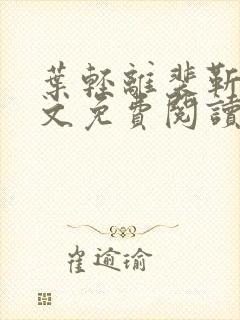 葉輕離裴靳
文免費閱讀
崔逾瑜